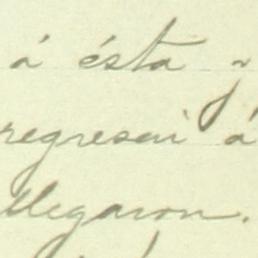 á ésta y
regresaré á
llegaron.